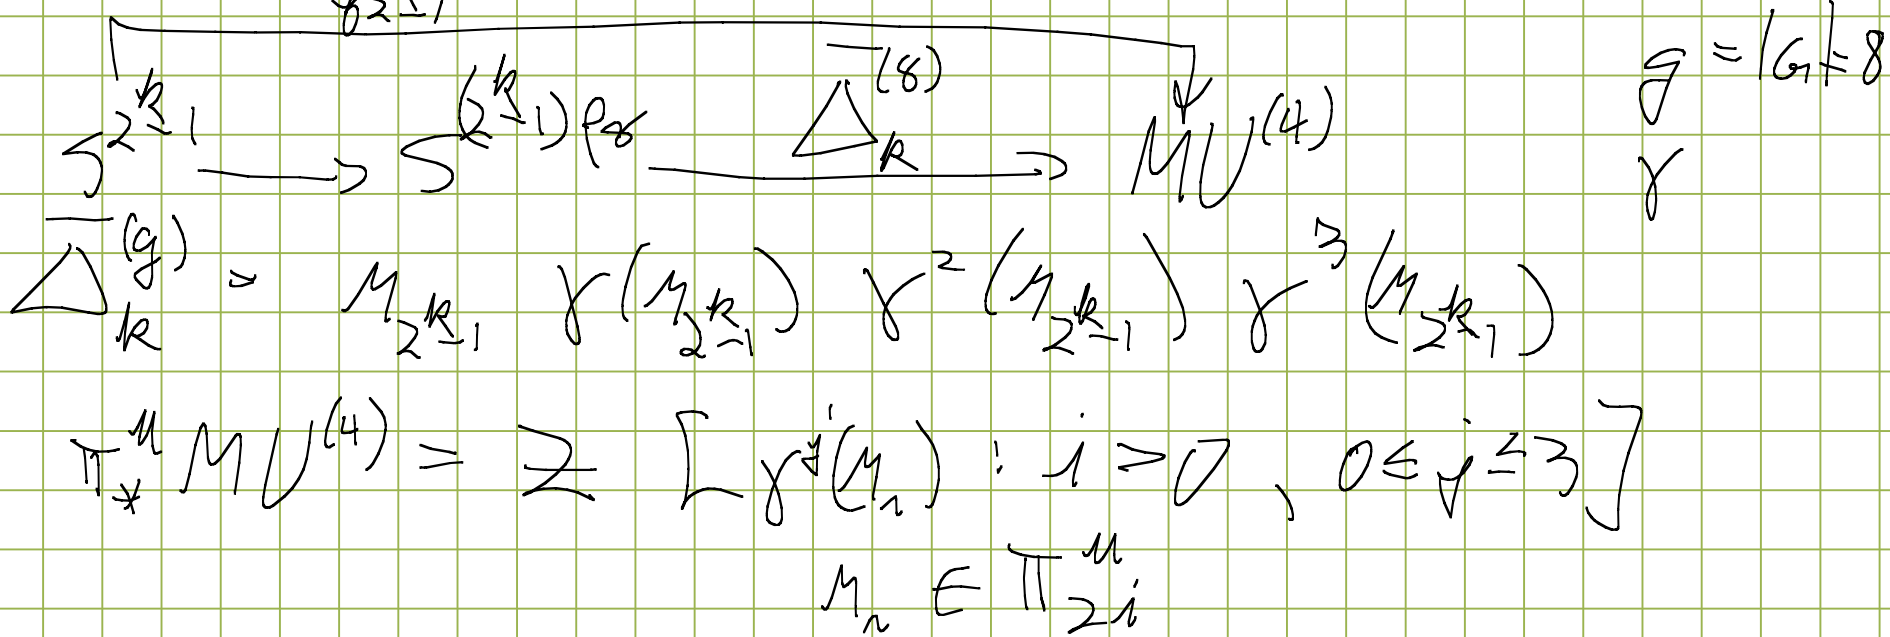 g = |G| = 8
S^{2^k-1} → S^{(2^k-1)ρ_8} \overline{Δ}_k^{(8)} → MU^{(4)} γ
\overline{Δ}_k^{(g)} = r_{2^k-1} γ(r_{2^k-1}) γ^2(r_{2^k-1}) γ^3(r_{2^k-1})
π_*^u MU^{(4)} = Z [γ^j(r_i) : i > 0, 0 ≤ j ≤ 3]
r_i ∈ π_{2i}^u